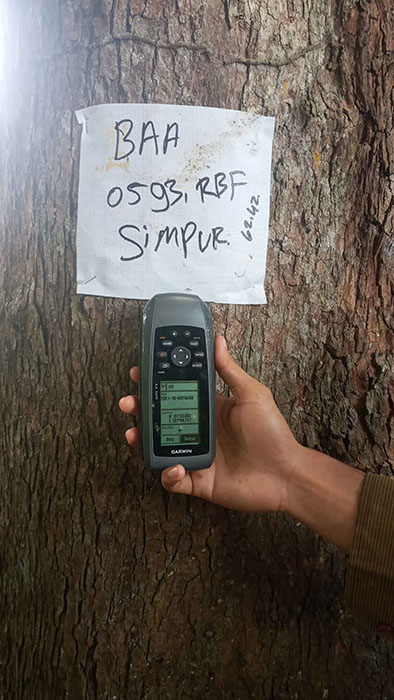 BAA
0593.RBF
SIMPUR
62.42
GARMIN